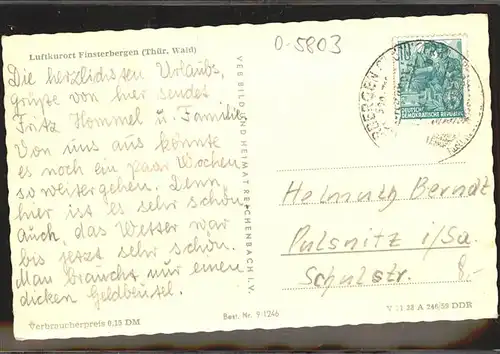 O-5803
Luftkurort Finsterbergen (Thür. Wald)
Die herzlichsten Urlaubs-
grüße von hier sendet
Fritz Hommel u. Familie.
Von uns aus könnte
es noch ein paar Wochen
so weitergehen. Denn
hier ist es sehr schön
auch, das Wetter war
bis jetzt sehr schön.
Man braucht nur einen
dicken Geldbeutel.
Verbraucherpreis 0,15 DM
VEB BILD UND HEIMAT REICHENBACH I. V.
Best. Nr. 9-1246
DEUTSCHE
DEMOKRATISCHE REPUBLIK
Helmuth Berndt
Pulsnitz i/Sa.
Schulstr. 8.-
V 11 28 A 246/59 DDR